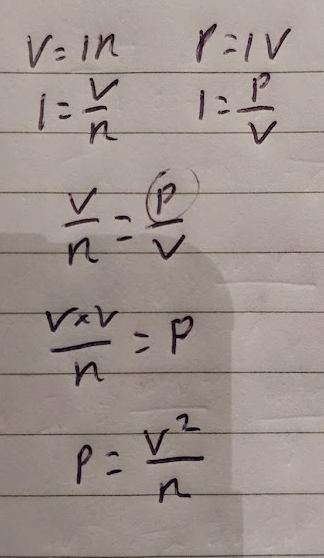 V = IR P = IV
I = V/R I = P/V
V/R = P/V
V×V/R = P
P = V²/R